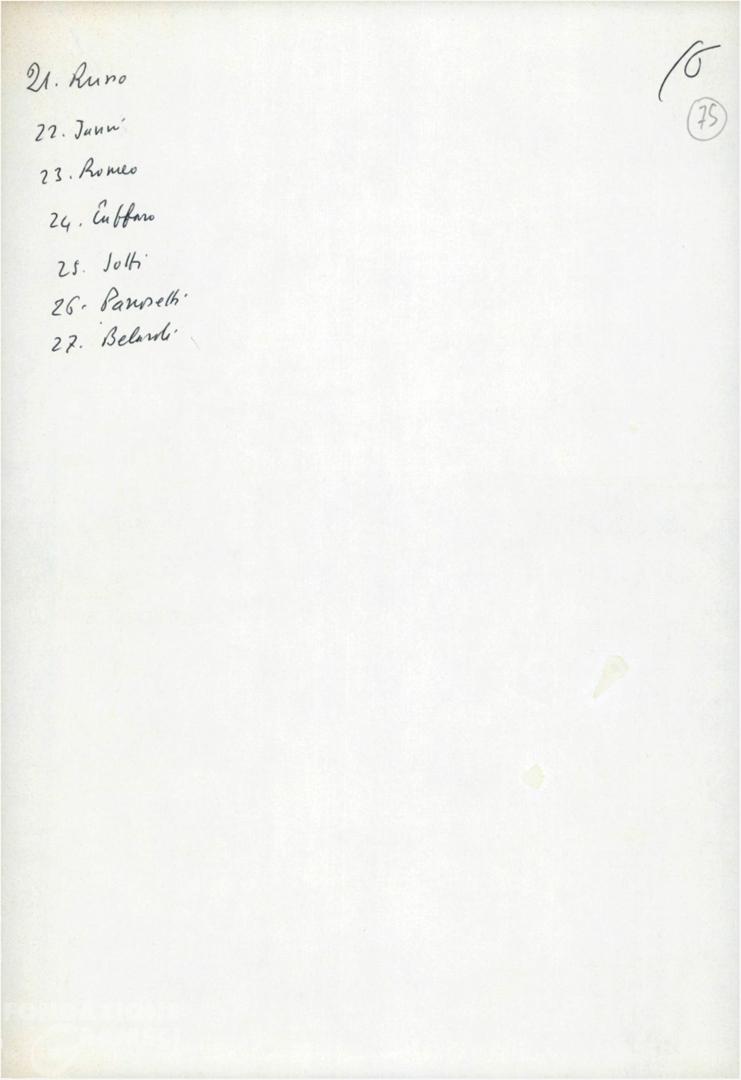 21. Russo
22. Iannì
23. Romeo
24. Cuffaro
25. Iotti
26. Panosetti
27. Belardi
16
75
FONDAZIONE
GRAMSCI